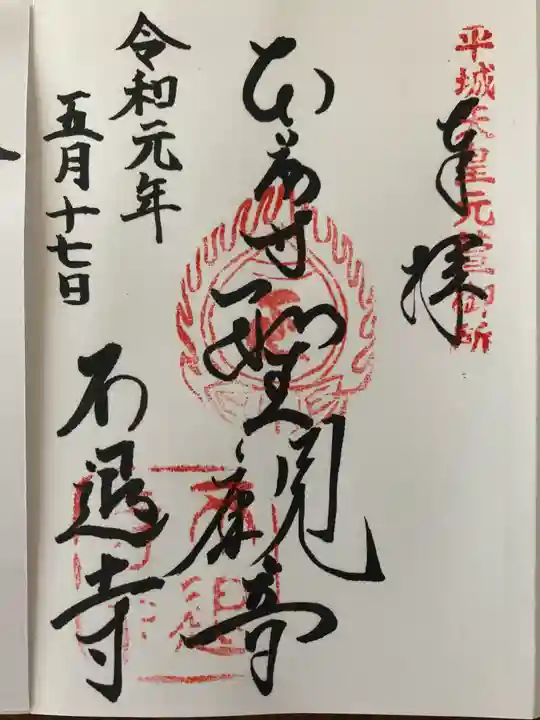 平城天皇元萱御所
奉拝
本尊 聖観音
不退寺
令和元年
五月十七日